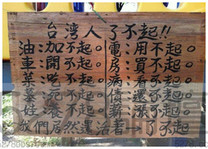 台灣人了不起!!
油加不起。電用不起
車開不起。房買不起
不起。病看不起
不起。還不起
養不起。漲不起
我們居然還活著 了不起!!